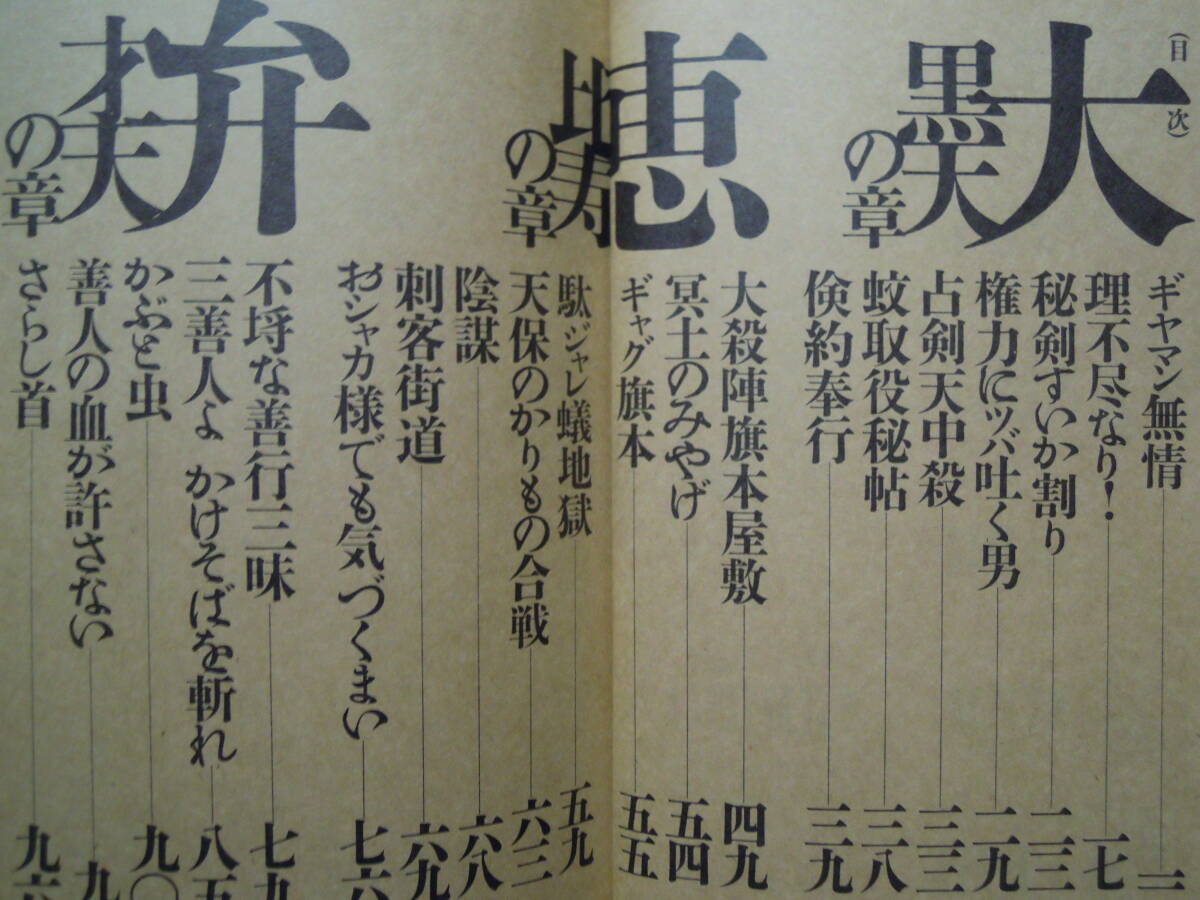 (目次)
大黒天の章
ギヤマン無情
理不尽なり! 一七
秘剣すいか割り 二三
権力にツバ吐く男 二九
占剣天中殺 三三
蚊取役秘帖 三八
倹約奉行 三九
恵比寿の章
大殺陣旗本屋敷 四九
冥土のみやげ 五四
ギャグ旗本 五五
駄ジャレ蟻地獄 五九
天保のかりもの合戦 六三
陰謀 六八
刺客街道 六九
おシャカ様でも気づくまい 七六
弁才天の章
不埒な善行三昧 七九
三善人よ かけそばを斬れ 八五
かぶと虫 九〇
善人の血が許さない 九
さらし首 九六